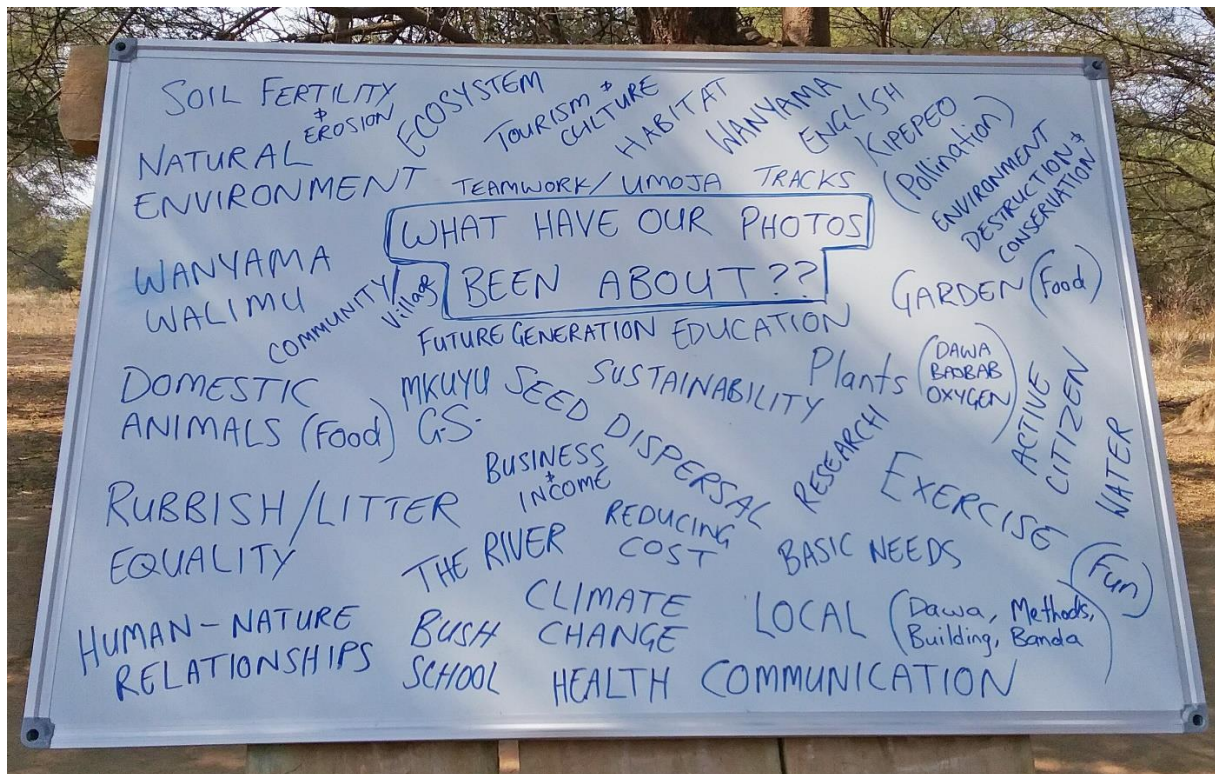 SOIL FERTILITY
& EROSION
ECOSYSTEM
TOURISM &
CULTURE
HABITAT
WANYAMA
ENGLISH
KIPEPEO
(Pollination)
ENVIRONMENT
DESTRUCTION &
CONSERVATION
NATURAL
ENVIRONMENT
TEAMWORK/UMOJA
TRACKS
WHAT HAVE OUR PHOTOS
BEEN ABOUT??
WANYAMA
WALIMU
COMMUNITY/
Village
GARDEN (Food)
FUTURE GENERATION
EDUCATION
DOMESTIC
ANIMALS (Food)
MKUYU
G.S.
SEED DISPERSAL
SUSTAINABILITY
Plants (DAWA
BAOBAB
OXYGEN)
ACTIVE
CITIZEN
WATER
BUSINESS
& INCOME
RESEARCH
EXERCISE
(Fun)
RUBBISH/LITTER
EQUALITY
THE RIVER
REDUCING
COST
BASIC NEEDS
HUMAN-NATURE
RELATIONSHIPS
BUSH
SCHOOL
CLIMATE
CHANGE
LOCAL (Dawa, Methods,
Building, Banda)
HEALTH
COMMUNICATION